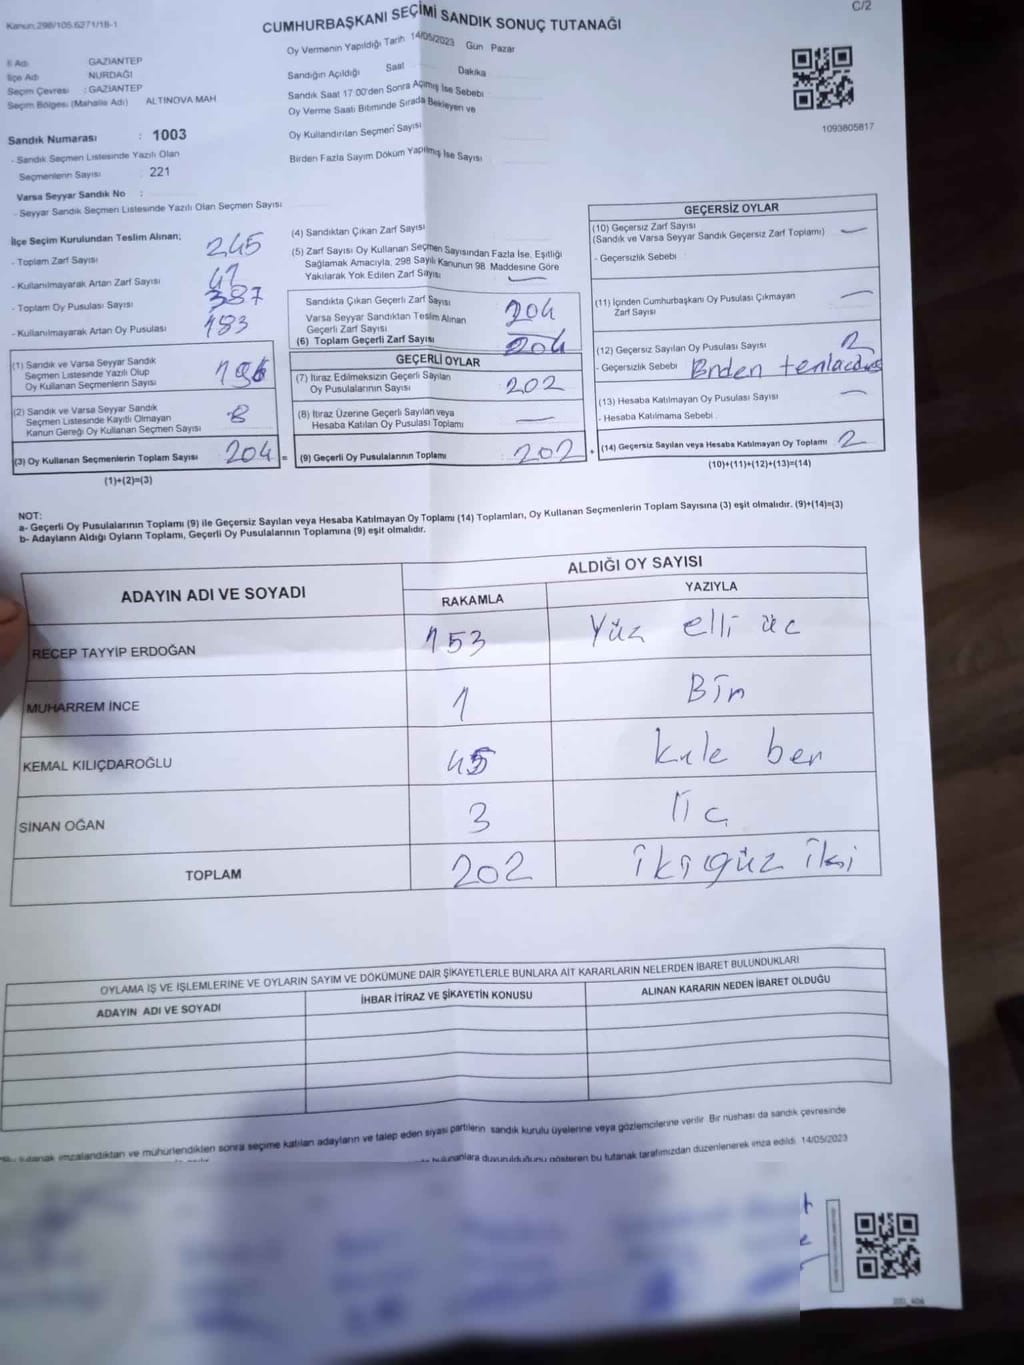 Kanun:298/105.6271/18-1
C/2
CUMHURBAŞKANI SEÇİMİ SANDIK SONUÇ TUTANAĞI
Oy Vermenin Yapıldığı Tarih 14/05/2023 Gün Pazar
İl Adı GAZİANTEP
İlçe Adı NURDAĞI
Seçim Çevresi : GAZİANTEP
Seçim Bölgesi (Mahalle Adı) ALTINOVA MAH
Sandık Numarası : 1003
- Sandık Seçmen Listesinde Yazılı Olan
Seçmenlerin Sayısı : 221
Varsa Seyyar Sandık No :
- Seyyar Sandık Seçmen Listesinde Yazılı Olan Seçmen Sayısı
Sandığın Açıldığı Saat Dakika
Sandık Saat 17.00'den Sonra Açılmış İse Sebebi
Oy Verme Saati Bitiminde Sırada Bekleyen ve
Oy Kullandırılan Seçmen Sayısı
Birden Fazla Sayım Döküm Yapılmış İse Sayısı
1093805817
İlçe Seçim Kurulundan Teslim Alınan;
- Toplam Zarf Sayısı 245
- Kullanılmayarak Artan Zarf Sayısı 41
- Toplam Oy Pusulası Sayısı 387
- Kullanılmayarak Artan Oy Pusulası 183
(1) Sandık ve Varsa Seyyar Sandık
Seçmen Listesinde Yazılı Olup
Oy Kullanan Seçmenlerin Sayısı 196
(2) Sandık ve Varsa Seyyar Sandık
Seçmen Listesinde Kayıtlı Olmayan
Kanun Gereği Oy Kullanan Seçmen Sayısı 8
(3) Oy Kullanan Seçmenlerin Toplam Sayısı 204 =
(1)+(2)=(3)
(4) Sandıktan Çıkan Zarf Sayısı
(5) Zarf Sayısı Oy Kullanan Seçmen Sayısından Fazla İse, Eşitliği
Sağlamak Amacıyla, 298 Sayılı Kanunun 98. Maddesine Göre
Yakılarak Yok Edilen Zarf Sayısı —
Sandıkta Çıkan Geçerli Zarf Sayısı 204
Varsa Seyyar Sandıktan Teslim Alınan
Geçerli Zarf Sayısı —
(6) Toplam Geçerli Zarf Sayısı 204
GEÇERLİ OYLAR
(7) İtiraz Edilmeksizin Geçerli Sayılan
Oy Pusulalarının Sayısı 202
(8) İtiraz Üzerine Geçerli Sayılan veya
Hesaba Katılan Oy Pusulası Toplamı —
(9) Geçerli Oy Pusulalarının Toplamı 202 +
GEÇERSİZ OYLAR
(10) Geçersiz Zarf Sayısı
(Sandık ve Varsa Seyyar Sandık Geçersiz Zarf Toplamı) —
- Geçersizlik Sebebi
(11) İçinden Cumhurbaşkanı Oy Pusulası Çıkmayan
Zarf Sayısı —
(12) Geçersiz Sayılan Oy Pusulası Sayısı 2
- Geçersizlik Sebebi
(13) Hesaba Katılmayan Oy Pusulası Sayısı —
- Hesaba Katılmama Sebebi
(14) Geçersiz Sayılan veya Hesaba Katılmayan Oy Toplamı 2
(10)+(11)+(12)+(13)=(14)
NOT:
a- Geçerli Oy Pusulalarının Toplamı (9) ile Geçersiz Sayılan veya Hesaba Katılmayan Oy Toplamı (14) Toplamları, Oy Kullanan Seçmenlerin Toplam Sayısına (3) eşit olmalıdır. (9)+(14)=(3)
b- Adayların Aldığı Oyların Toplamı, Geçerli Oy Pusulalarının Toplamına (9) eşit olmalıdır.
ADAYIN ADI VE SOYADI ALDIĞI OY SAYISI
RAKAMLA YAZIYLA
RECEP TAYYİP ERDOĞAN 153 Yüz elli üc
MUHARREM İNCE 1 Bir
KEMAL KILIÇDAROĞLU 45
SİNAN OĞAN 3 Üç
TOPLAM 202 ikiyüz iki
OYLAMA İŞ VE İŞLEMLERİNE VE OYLARIN SAYIM VE DÖKÜMÜNE DAİR ŞİKAYETLERLE BUNLARA AİT KARARLARIN NELERDEN İBARET BULUNDUKLARI
ADAYIN ADI VE SOYADI İHBAR İTİRAZ VE ŞİKAYETİN KONUSU ALINAN KARARIN NEDEN İBARET OLDUĞU
tutanak imzalandıktan ve mühürlendikten sonra seçime katılan adayların ve talep eden siyasi partilerin sandık kurulu üyelerine veya gözlemcilerine verilir. Bir nüshası da sandık çevresinde
bulunanlara duyurulduğunu gösteren bu tutanak tarafımızdan düzenlenerek imza edildi. 14/05/2023